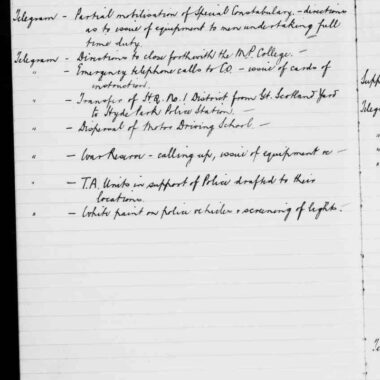 Telegram - Partial mobilisation of Special Constabulary - directions
as to issue of equipment to men undertaking full
time duty.
Telegram - Directions to close forthwith the M.P. College. -
" - Emergency telephone calls to C.O. - issue of cards of
instruction.
" - Transfer of H.Q. No. 1 District from Gt. Scotland Yard
to Hyde Park Police Station. -
" - Disposal of Motor Driving School. -
" - War Reserve - calling up, issue of equipment &c -
" - T.A. Units in support of Police drafted to their
locations.
" - White paint on police vehicles & screening of lights. -